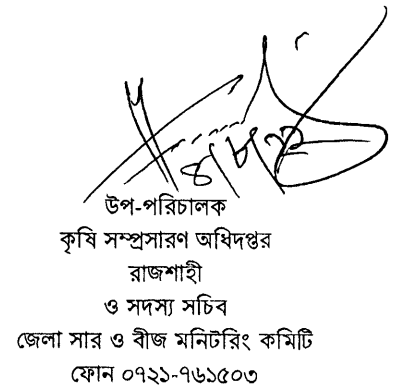 উপ-পরিচালক
কৃষি সম্প্রসারণ অধিদপ্তর
রাজশাহী
ও সদস্য সচিব
জেলা সার ও বীজ মনিটরিং কমিটি
ফোন ০৭২১-৭৬১৫০৩